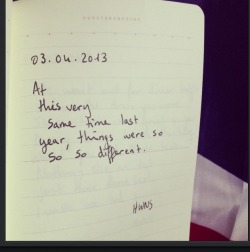 03.04.2013
At
this very
same time last
year, things were so
so so different.